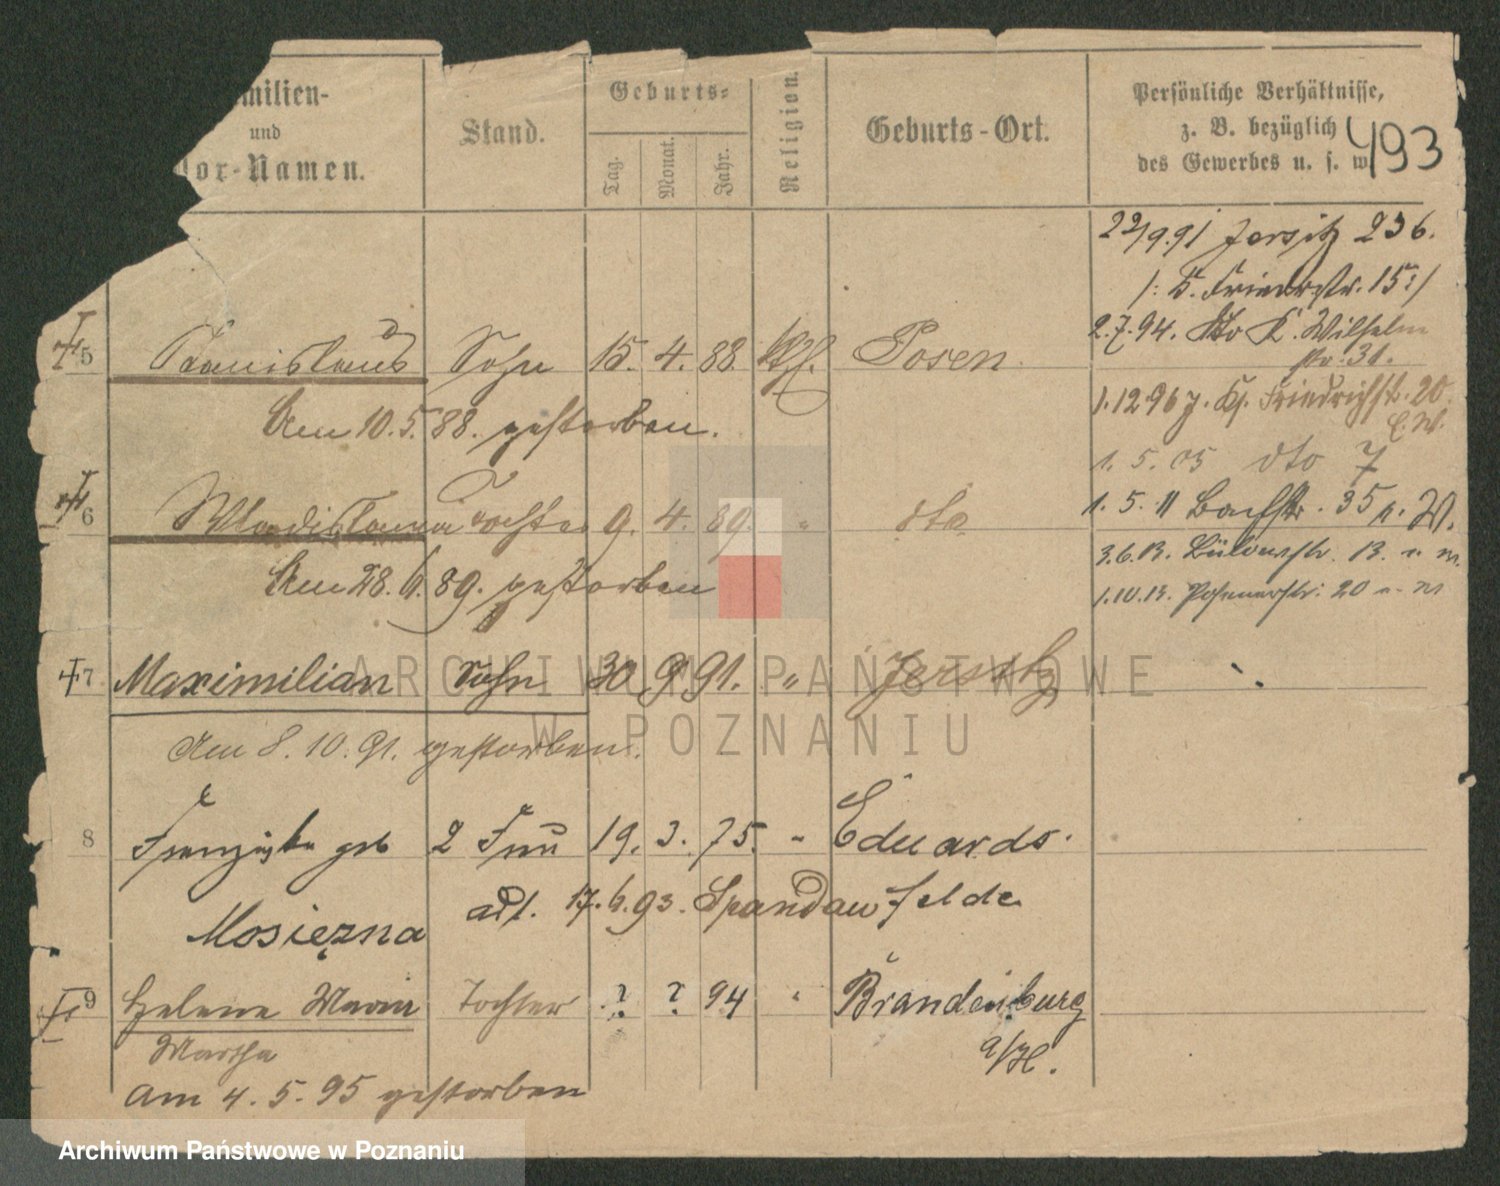 milien-
und
or-Namen.
Stand.
Geburts-
Tag.
Monat.
Jahr.
Religion.
Geburts-Ort.
Persönliche Verhältnisse,
z. B. bezüglich
des Gewerbes u. s. w.
493
22/9.91 Jersitz 236.
/: K. Friedrstr. 15 :/
2.7.94. dto K. Wilhelm
str. 31.
5 Stanislaus Sohn 15. 4. 88. kth. Posen
1.12.96 Friedrichstr. 20
E.W.
Am 10.5.88. gestorben.
1. 5. 05 dto 7
6 Wladislawa Tochter 9. 4. 89. " dto
1. 5. 11 Bachstr. 35 W.
3.6.13. Bülowstr. 13.
Am 28.6.89. gestorben
1.10.13. Posenerstr. 20
7 Maximilian Sohn 30. 9. 91. " Jersitz
Am 8.10.91. gestorben.
8 Franziska geb 2 Frau 19. 3. 75. " Eduards-
felde
Mosiężna adt. 17.6.93. Spandau
9 Helene Maria Tochter ? ? 94 " Brandenburg
a/H.
Martha
am 4.5.95 gestorben
ARCHIWUM PAŃSTWOWE
W POZNANIU
Archiwum Państwowe w Poznaniu